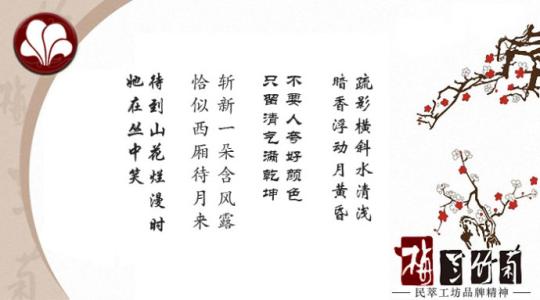 疏影横斜水清浅
暗香浮动月黄昏
不要人夸好颜色
只留清气满乾坤
斩新一朵含风露
恰似西厢待月来
待到山花烂漫时
她在丛中笑
梅兰竹菊
民萃工坊品牌精神